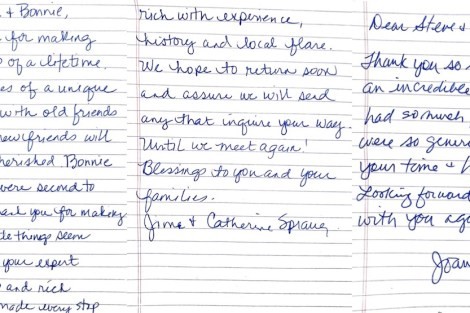 & Bonnie,
for making
of a lifetime.
of a unique
with old friends
new friends will
cherished. Bonnie
were second to
you for making
things seem
your expert
and rich
made every step
rich with experience,
history and local flare.
We hope to return soon
and assure we will send
any that inquire your way.
Until we meet again!
Blessings to you and your
families.
Jim & Catherine
Dear Steve &
Thank you so
an incredible
had so much
were so generous
your time &
Looking forward
with you